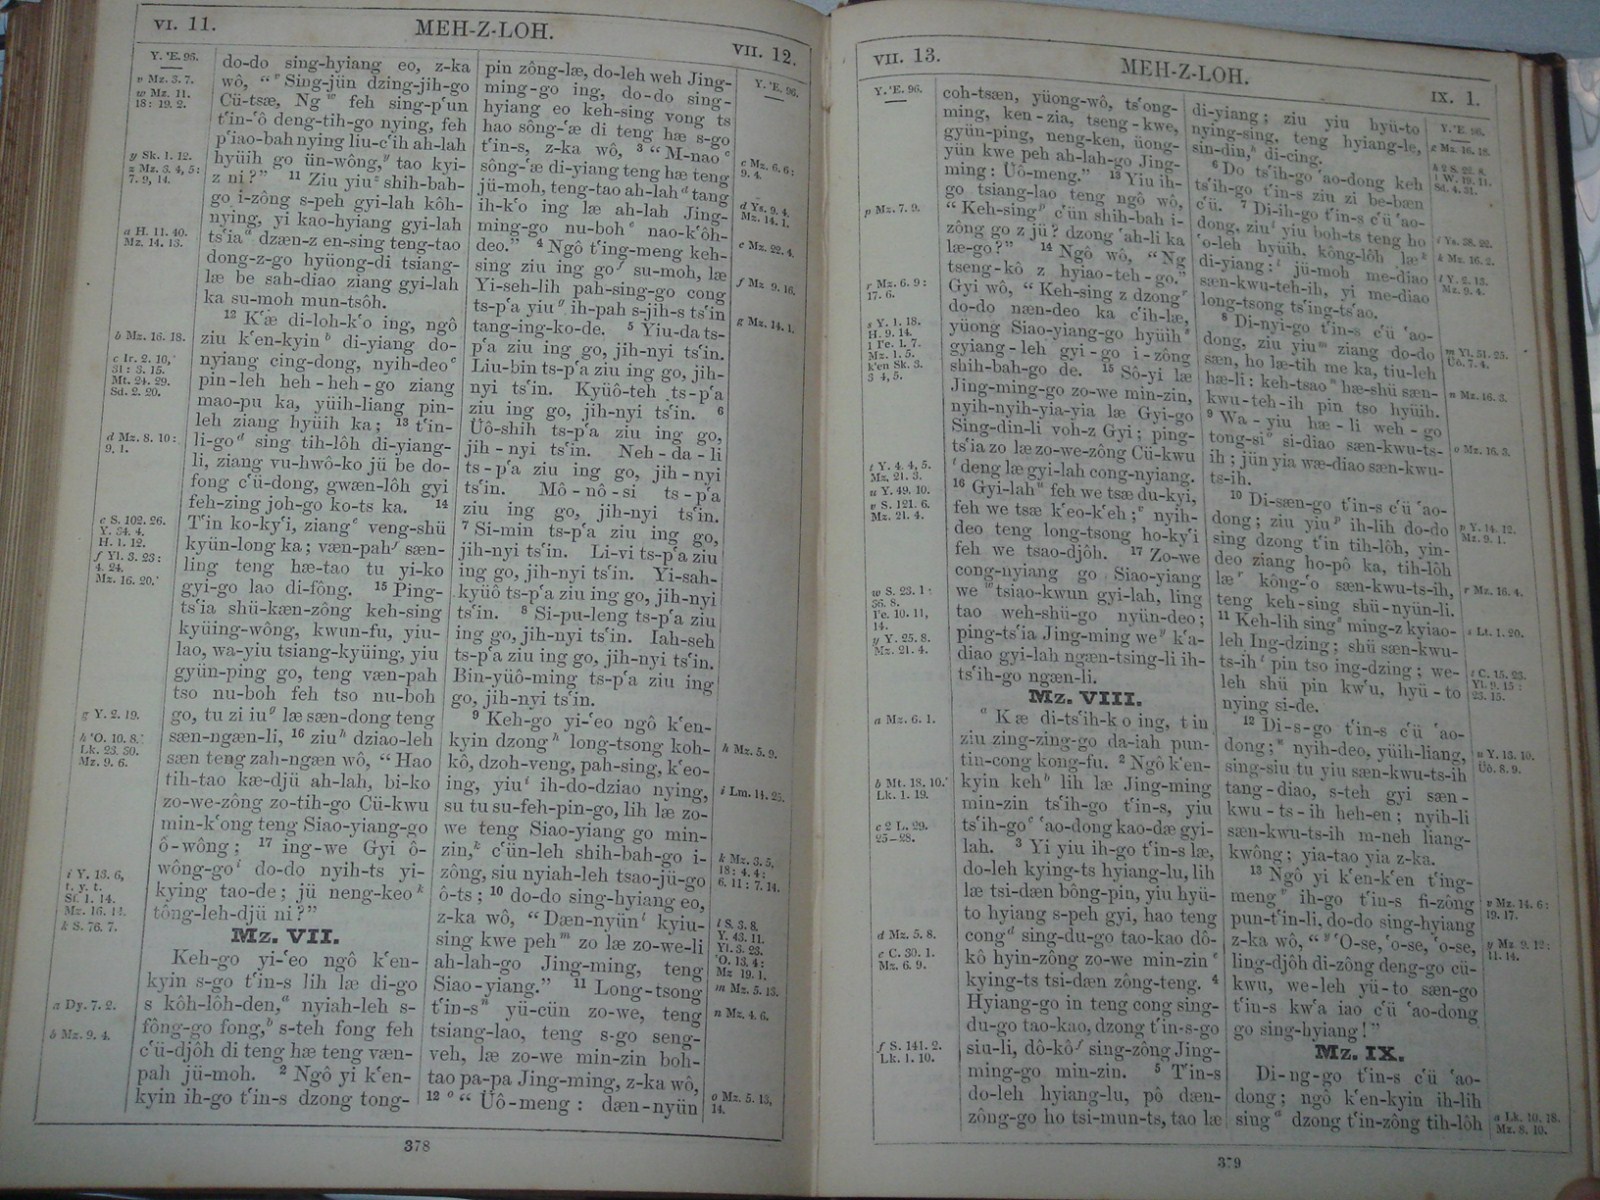 VI. 11.
MEH-Z-LOH.
VII. 12.
Y. ʻE. 96.
v Mz. 3. 7.
w Mz. 11.
18: 19. 2.
y Sk. 1. 12.
z Mz. 3. 4, 5:
7. 9, 14.
a H. 11. 40.
Mz. 14. 13.
b Mz. 16. 18.
c Ir. 2. 10,
31: 3. 15.
Mt. 24. 29.
Sd. 2. 20.
d Mz. 8. 10:
9. 1.
e S. 102. 26.
Y. 34. 4.
H. 1. 12.
f Yl. 3. 23:
4. 24.
Mz. 16. 20.
g Y. 2. 19.
h ʻO. 10. 8.
Lk. 23. 30.
Mz. 9. 6.
i Y. 13. 6,
t. y. t.
Sf. 1. 14.
Mz. 16. 14.
k S. 76. 7.
a Dy. 7. 2.
b Mz. 9. 4.
do-do sing-hyiang eo, z-ka
wô, “ ᵛ Sing-jün dzing-jih-go
Cü-tsæ, Ng ʷ feh sing-pʻun
tʻin-ʻô deng-tih-go nying, feh
pʻiao-bah nying liu-cʻih ah-lah
hyüih go ün-wông,ʸ tao kyi-
z ni?” 11 Ziu yiuᶻ shih-bah-
go i-zông s-peh gyi-lah kôh-
nying, yi kao-hyiang gyi-lah
tsʻiaᵃ dzæn-z en-sing teng-tao
dong-z-go hyüong-di tsiang-
læ be sah-diao ziang gyi-lah
ka su-moh mun-tsôh.
12 Kʻæ di-loh-kʻo ing, ngô
ziu kʻen-kyinᵇ di-yiang do-
nyiang cing-dong, nyih-deoᶜ
pin-leh heh-heh-go ziang
mao-pu ka, yüih-liang pin-
leh ziang hyüih ka; 13 tʻin-
li-goᵈ sing tih-lôh di-yiang-
li, ziang vu-hwô-ko jü be do-
fong cʻü-dong, gwæn-lôh gyi
feh-zing joh-go ko-ts ka. 14
Tʻin ko-kyʻi, ziangᵉ veng-shü
kyün-long ka; væn-pahᶠ sæn-
ling teng hæ-tao tu yi-ko
gyi-go lao di-fông. 15 Ping-
tsʻia shü-kæn-zông keh-sing
kyüing-wông, kwun-fu, yiu-
lao, wa-yiu tsiang-kyüing, yiu
gyün-ping go, teng væn-pah
tso nu-boh feh tso nu-boh
go, tu zi iuᵍ læ sæn-dong teng
sæn-ngæn-li, 16 ziuʰ dziao-leh
sæn teng zah-ngæn wô, “Hao
tih-tao kæ-djü ah-lah, bi-ko
zo-we-zông zo-tih-go Cü-kwu
min-kʻong teng Siao-yiang-go
ô-wông; 17 ing-we Gyi ô-
wông-goⁱ do-do nyih-ts yi-
kying tao-de; jü neng-keoᵏ
tông-leh-djü ni?”
Mz. VII.
Keh-go yi-ʻeo ngô kʻen-
kyin s-go tʻin-s lih læ di-go
s kôh-lôh-den,ᵃ nyiah-leh s-
fông-go fong,ᵇ s-teh fong feh
cʻü-djôh di teng hæ teng væn-
pah jü-moh. 2 Ngô yi kʻen-
kyin ih-go tʻin-s dzong tong-
pin zông-læ, do-leh weh Jing-
ming-go ing, do-do sing-
hyiang eo keh-sing vong ts
hao sông-ʻæ di teng hæ s-go
tʻin-s, z-ka wô, 3 “M-naoᶜ
sông-ʻæ di-yiang teng hæ teng
jü-moh, teng-tao ah-lahᵈ tang
ih-kʻo ing læ ah-lah Jing-
ming-go nu-bohᵉ nao-kʻôh-
deo.” 4 Ngô tʻing-meng keh-
sing ziu ing goᶠ su-moh, læ
Yi-seh-lih pah-sing-go cong
ts-pʻa yiuᵍ ih-pah s-jih-s tsʻin
tang-ing-ko-de. 5 Yiu-da ts-
pʻa ziu ing go, jih-nyi tsʻin.
Liu-bin ts-pʻa ziu ing go, jih-
nyi tsʻin. Kyüô-teh ts-pʻa
ziu ing go, jih-nyi tsʻin. 6
Üô-shih ts-pʻa ziu ing go,
jih-nyi tsʻin. Neh-da-li
ts-pʻa ziu ing go, jih-nyi
tsʻin. Mô-nô-si ts-pʻa
ziu ing go, jih-nyi tsʻin.
7 Si-min ts-pʻa ziu ing go,
jih-nyi tsʻin. Li-vi ts-pʻa ziu
ing go, jih-nyi tsʻin. Yi-sah-
kyüô ts-pʻa ziu ing go, jih-nyi
tsʻin. 8 Si-pu-leng ts-pʻa ziu
ing go, jih-nyi tsʻin. Iah-seh
ts-pʻa ziu ing go, jih-nyi tsʻin.
Bin-yüô-ming ts-pʻa ziu ing
go, jih-nyi tsʻin.
9 Keh-go yi-ʻeo ngô kʻen-
kyin dzongʰ long-tsong koh-
kô, dzoh-veng, pah-sing, kʻeo-
ing, yiuⁱ ih-do-dziao nying,
su tu su-feh-pin-go, lih læ zo-
we teng Siao-yiang go min-
zin,ᵏ cʻün-leh shih-bah-go i-
zông, siu nyiah-leh tsao-jü-go
ô-ts; 10 do-do sing-hyiang eo,
z-ka wô, “Dæn-nyünˡ kyiu-
sing kwe pehᵐ zo læ zo-we-li
ah-lah-go Jing-ming, teng
Siao-yiang.” 11 Long-tsong
tʻin-sⁿ yü-cün zo-we, teng
tsiang-lao, teng s-go seng-
veh, læ zo-we min-zin boh-
tao pa-pa Jing-ming, z-ka wô,
12 ᵒ “Üô-meng: dæn-nyün
Y. ʻE. 96.
c Mz. 6. 6:
9. 4.
d Ys. 9. 4.
Mz. 14. 1.
e Mz. 22. 4.
f Mz. 9. 16.
g Mz. 14. 1.
h Mz. 5. 9.
i Lm. 14. 25.
k Mz. 3. 5,
18: 4. 4:
6. 11: 7. 14.
l S. 3. 8.
Y. 43. 11.
Yl. 3. 23.
ʻO. 13. 4:
Mz 19. 1.
m Mz. 5. 13.
n Mz. 4. 6.
o Mz. 5. 13,
14.
378
VII. 13.
MEH-Z-LOH.
IX. 1.
Y. ʻE. 96.
p Mz. 7. 9.
r Mz. 6. 9:
17. 6.
s Y. 1. 18.
H. 9. 14.
1 Te. 1. 7.
Mz. 1. 5.
kʻen Sk. 3.
3 4, 5.
t Y. 4. 4, 5.
Mz. 21. 3.
u Y. 49. 10.
v S. 121. 6.
Mz. 21. 4.
w S. 23. 1:
36. 8.
Te. 10. 11,
14.
y Y. 25. 8.
Mz. 21. 4.
a Mz. 6. 1.
b Mt. 18. 10.
Lk. 1. 19.
c 2 L. 29.
25–28.
d Mz. 5. 8.
e C. 30. 1.
Mz. 6. 9.
f S. 141. 2.
Lk. 1. 10.
coh-tsæn, yüong-wô, tsʻong-
ming, ken-zia, tseng-kwe,
gyün-ping, neng-ken, üong-
yün kwe peh ah-lah-go Jing-
ming: Üô-meng.” 13 Yiu ih-
go tsiang-lao teng ngô wô,
“Keh-singᵖ cʻün shih-bah i-
zông go z jü? dzong ʻah-li ka
læ-go?” 14 Ngô wô, “Ng
tseng-kô z hyiao-teh-go.”
Gyi wô, “Keh-sing z dzongʳ
do-do næn-deo ka cʻih-læ,
yüong Siao-yiang-go hyüihˢ
gyiang-leh gyi-go i-zông
shih-bah-go de. 15 Sô-yi læ
Jing-ming-go zo-we min-zin,
nyih-nyih-yia-yia læ Gyi-go
Sing-din-li voh-z Gyi; ping-
tsʻia zo læ zo-we-zông Cü-kwu
ᵗdeng læ gyi-lah cong-nyiang.
16 Gyi-lahᵘ feh we tsæ du-kyi,
feh we tsæ kʻeo-kʻeh;ᵛ nyih-
deo teng long-tsong ho-kyʻi
feh we tsao-djôh. 17 Zo-we
cong-nyiang go Siao-yiang
weʷ tsiao-kwun gyi-lah, ling
tao weh-shü-go nyün-deo;
ping-tsʻia Jing-ming weʸ kʻa-
diao gyi-lah ngæn-tsing-li ih-
tsʻih-go ngæn-li.
Mz. VIII.
ᵃ Kʻæ di-tsʻih-kʻo ing, tʻin
ziu zing-zing-go da-iah pun-
tin-cong kong-fu. 2 Ngô kʻen-
kyin kehᵇ lih læ Jing-ming
min-zin tsʻih-go tʻin-s, yiu
tsʻih-goᶜ ʻao-dong kao-dæ gyi-
lah. 3 Yi yiu ih-go tʻin-s læ,
do-leh kying-ts hyiang-lu, lih
læ tsi-dæn bông-pin, yiu hyü-
to hyiang s-peh gyi, hao teng
congᵈ sing-du-go tao-kao dô-
kô hyin-zông zo-we min-zinᵉ
kying-ts tsi-dæn zông-teng. 4
Hyiang-go in teng cong sing-
du-go tao-kao, dzong tʻin-s-go
siu-li, dô-kôᶠ sing-zông Jing-
ming-go min-zin. 5 Tʻin-s
do-leh hyiang-lu, pô dæn-
zông-go ho tsi-mun-ts, tao læ
di-yiang; ziu yiu hyü-to
nying-sing, teng hyiang-le,
sin-din,ʰ di-cing.
6 Do tsʻih-go ʻao-dong keh
tsʻih-go tʻin-s ziu zi be-bæn
cʻü. 7 Di-ih-go tʻin-s cʻü ʻao-
dong, ziuⁱ yiu boh-ts teng ho
ʻo-leh hyüih, kông-lôh lækᵏ
di-yiang:ˡ jü-moh me-diao
sæn-kwu-teh-ih, yi me-diao
long-tsong tsʻing-tsʻao.
8 Di-nyi-go tʻin-s cʻü ʻao-
dong, ziu yiuᵐ ziang do-do
sæn, ho læ-tih me ka, tiu-leh
hæ-li: keh-tsaoⁿ hæ-shü sæn-
kwu-teh-ih pin tso hyüih.
9 Wa-yiu hæ-li weh-go
tong-siᵒ si-diao sæn-kwu-ts-
ih; jün yia wæ-diao sæn-kwu-
ts-ih.
10 Di-sæn-go tʻin-s cʻü ʻao-
dong; ziu yiuᵖ ih-lih do-do
sing dzong tʻin tih-lôh, yin-
deo ziang ho-pô ka, tih-lôh
læʳ kông-ʻo sæn-kwu-ts-ih,
teng keh-sing shü-nyün-li.
11 Keh-lih singˢ ming-z kyiao-
leh Ing-dzing; shü sæn-kwu-
ts-ihᵗ pin tso ing-dzing; we-
leh shü pin kwʻu, hyü-to
nying si-de.
12 Di-s-go tʻin-s cʻü ʻao-
dong;ᵘ nyih-deo, yüih-liang,
sing-siu tu yiu sæn-kwu-ts-ih
tang-diao, s-teh gyi sæn-
kwu-ts-ih heh-en; nyih-li
sæn-kwu-ts-ih m-neh liang-
kwông; yia-tao yia z-ka.
13 Ngô yi kʻen-kʻen tʻing-
mengᵛ ih-go tʻin-s fi-zông
pun-tʻin-li, do-do sing-hyiang
z-ka wô, “ʸʻO-se, ʻo-se, ʻo-se,
ling-djôh di-zông deng-go cü-
kwu, we-leh yü-to sæn-go
tʻin-s kwʻa iao cʻü ʻao-dong
go sing-hyiang!”
Mz. IX.
Di-ng-go tʻin-s cʻü ʻao-
dong; ngô kʻen-kyin ih-lih
singᵃ dzong tʻin-zông tih-lôh
Y. ʻE 96.
g Mz. 16. 18.
h 2 S. 22. 8.
i W. 19. 11.
Sd. 4. 31.
i Ys. 38. 22.
k Mz. 16. 2.
l Y. 2. 13.
Mz. 9. 4.
m Yl. 51. 25.
Üô. 7. 4.
n Mz. 16. 3.
o Mz. 16. 3.
p Y. 14. 12.
Mz. 9. 1.
r Mz. 16. 4.
s Lt. 1. 20.
t C. 15. 23.
Yl. 9. 15:
23. 15.
u Y. 13. 10.
Üô. 8. 9.
v Mz. 14. 6:
19. 17.
y Mz 9. 12:
11. 14.
a Lk. 10. 18.
Mz. 8. 10.
379